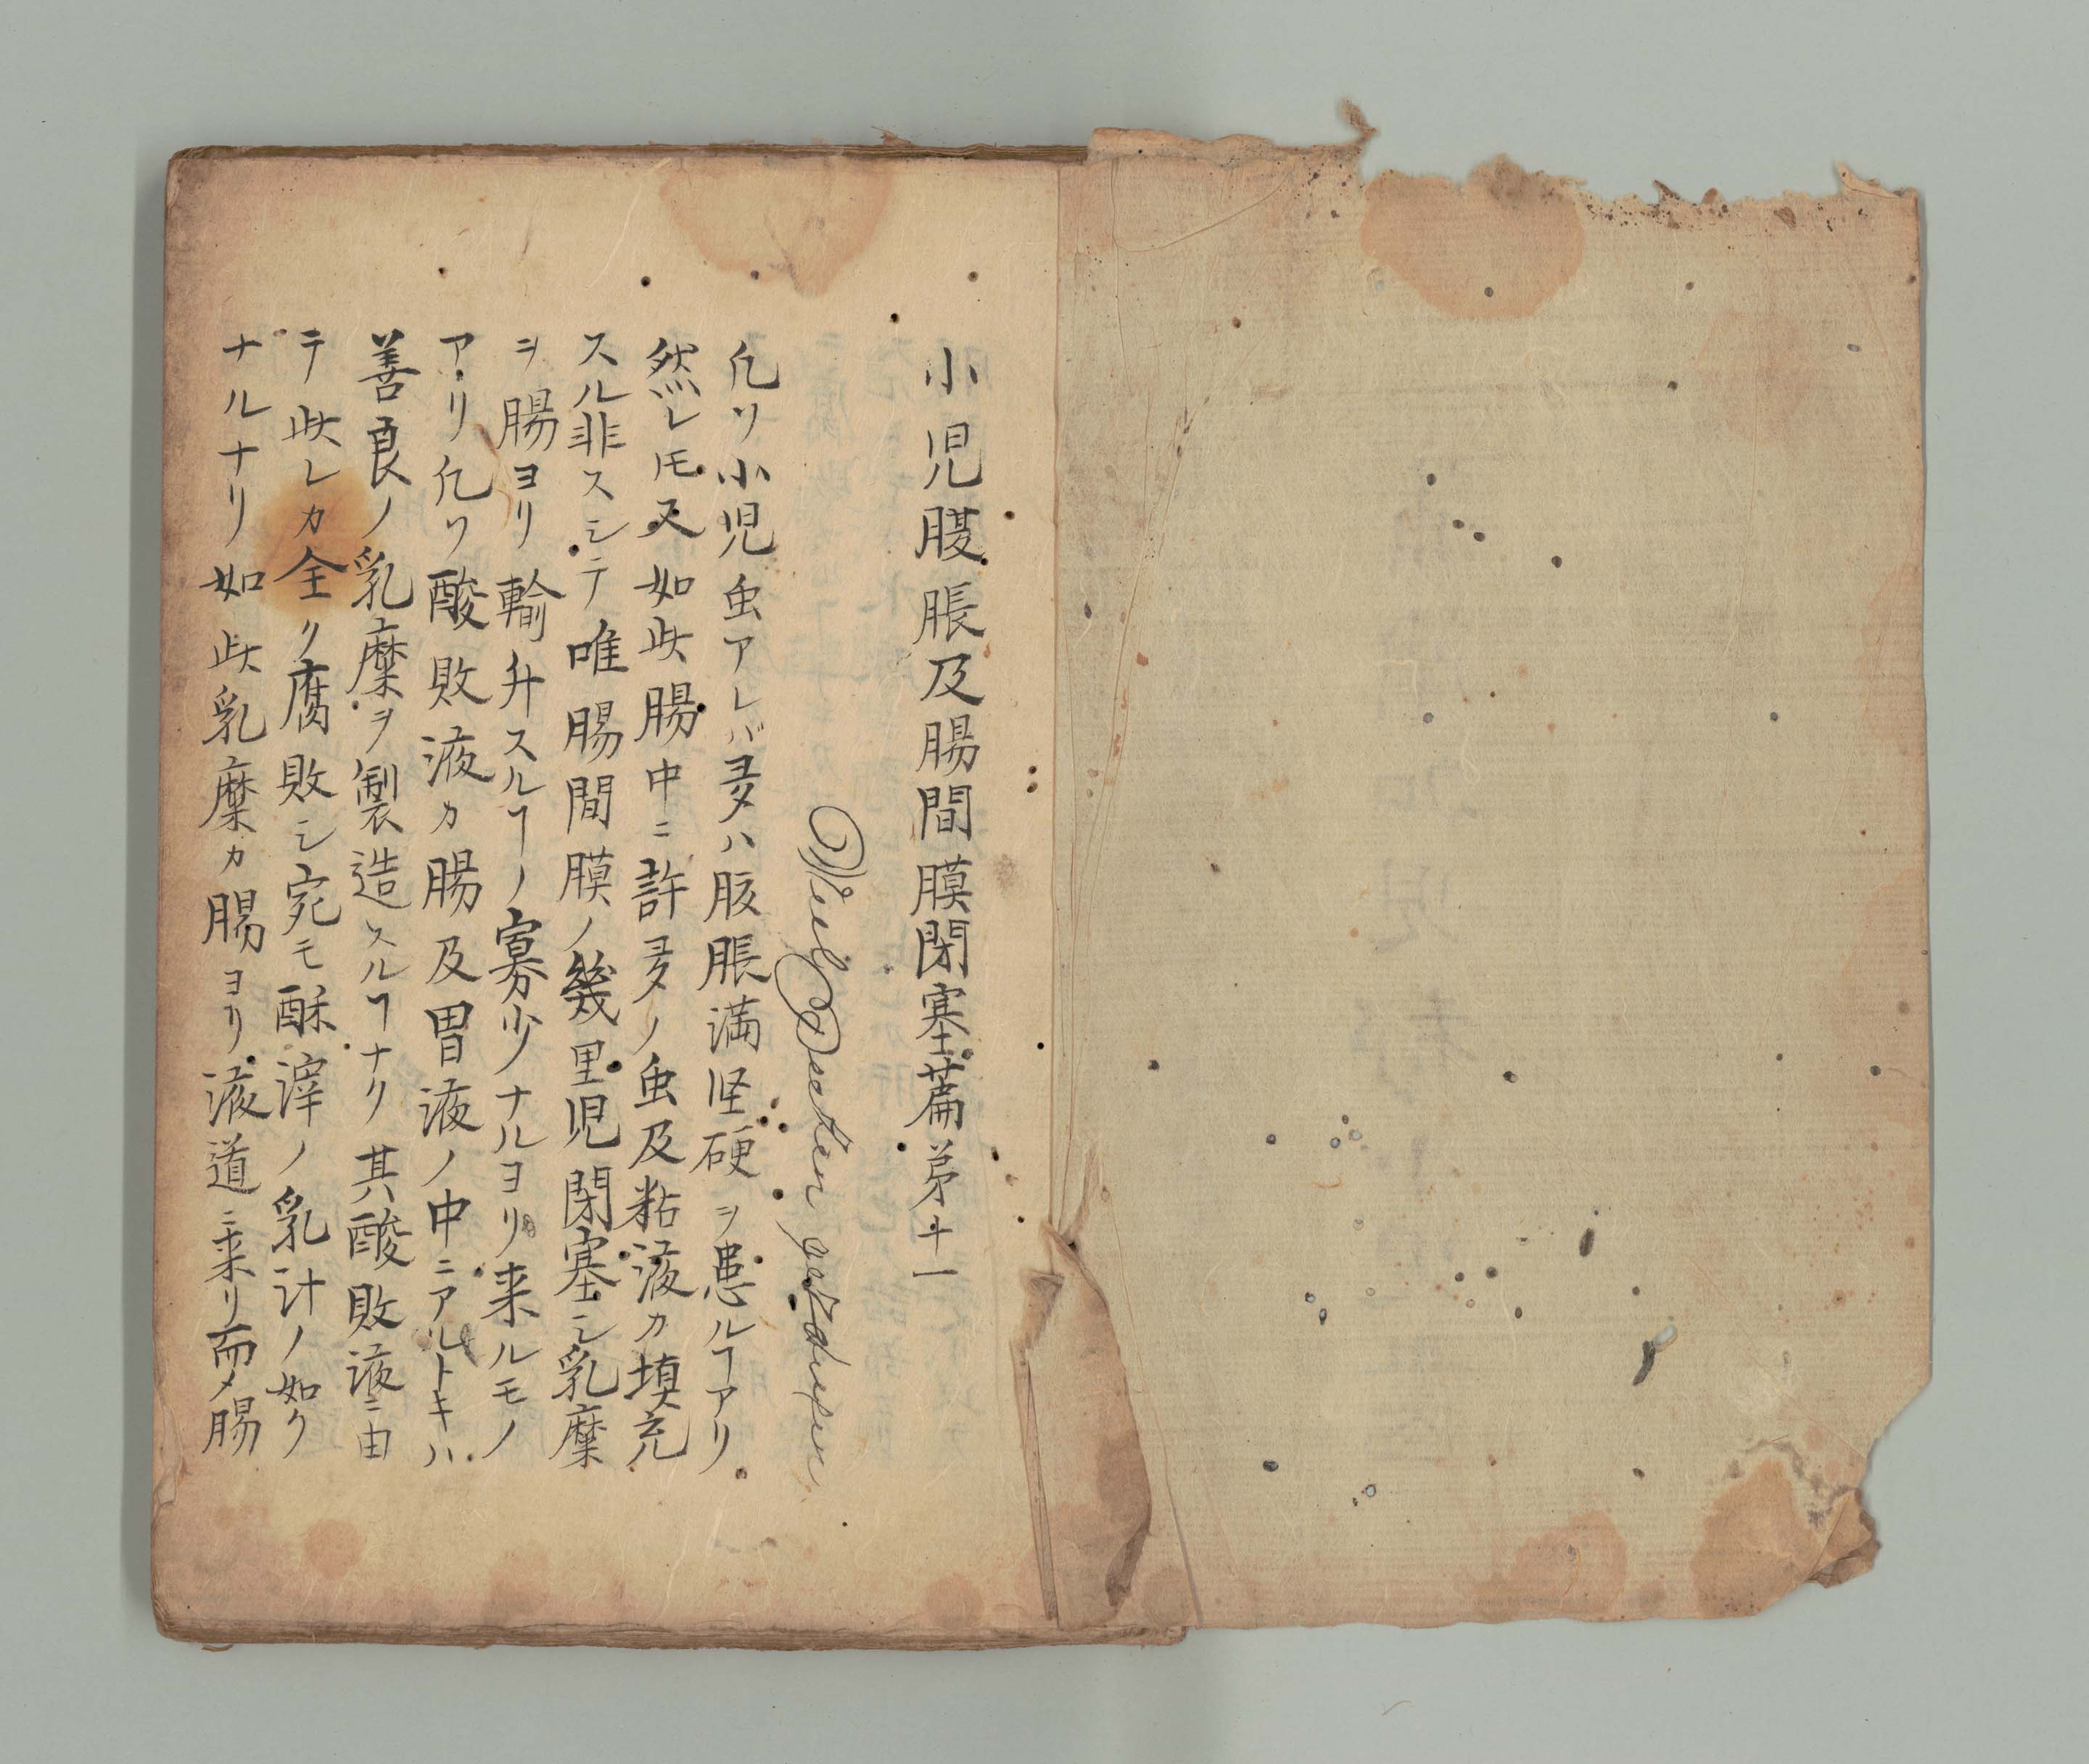 小児腹脹及腸間膜閉塞篇苐十一
凢ソ小児虫アレバ多ハ胘脹満怪硬ヲ患ルヿアリ
然レ𪜈又如此腸中ニ許多ノ虫及粘液カ填充
スル非スシテ唯腸間膜ノ幾里児閉塞シ乳糜
ヲ腸ヨリ輸升スルヿノ寡少ナルヨリ来ルモノ
アリ凢ソ酸敗液カ腸及胃液ノ中ニアルトキハ
善良ノ乳糜ヲ製造スルヿナク其酸敗液ニ由
テ此レカ全ク腐敗シ宛モ酥滓ノ乳汁ノ如ク
ナルナリ如此乳糜カ腸ヨリ液道ニ来リ而〆腸